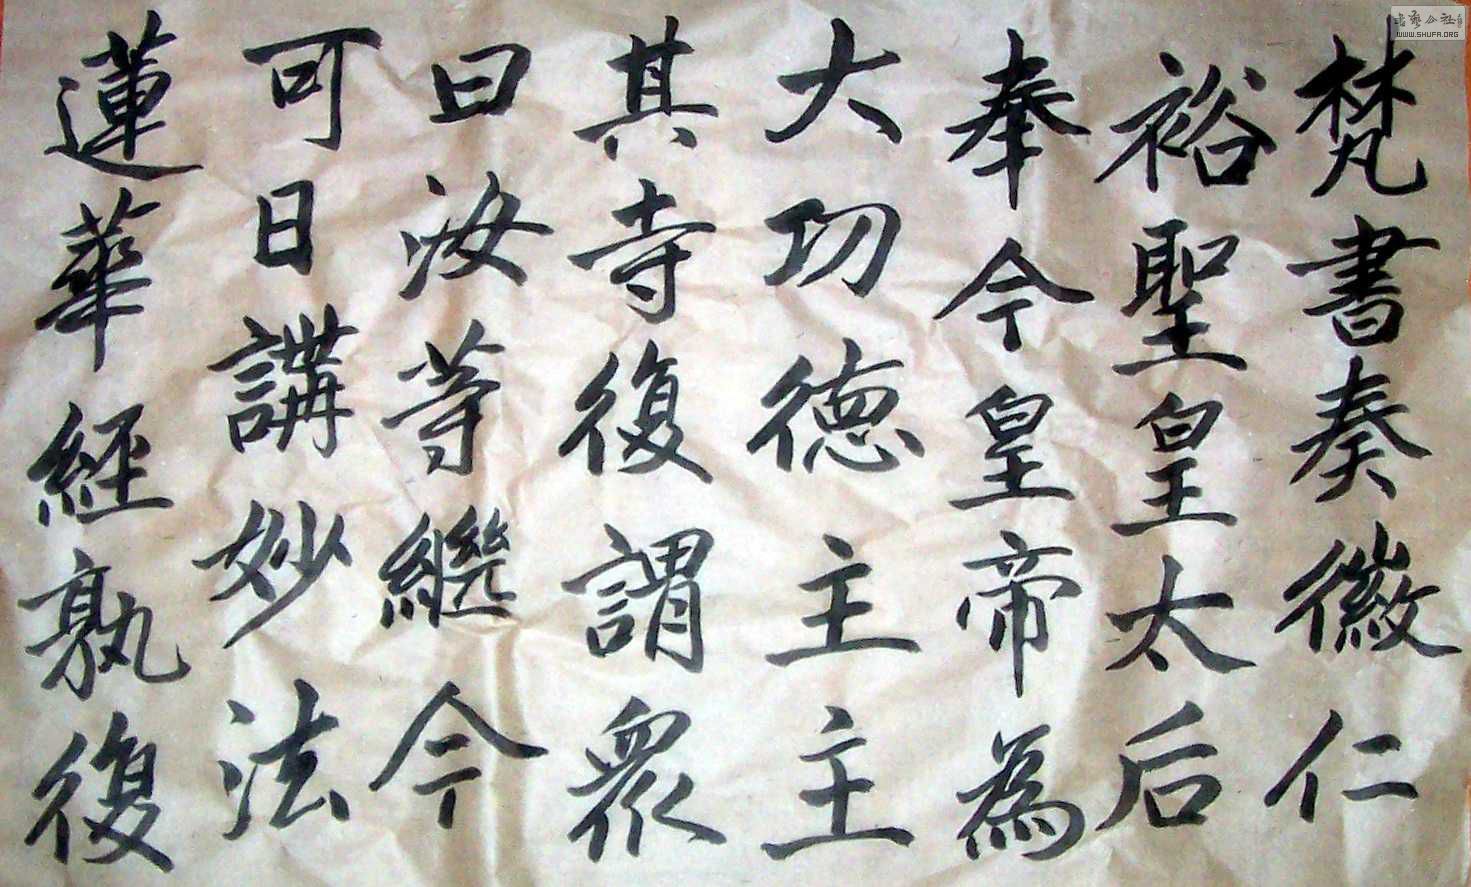 梵書奏徽仁
裕聖皇太后
奉今皇帝為
大功德主主
其寺復謂眾
曰汝等繼今
可日講妙法
蓮華經孰復
書藝公社
WWW.SHUFA.ORG